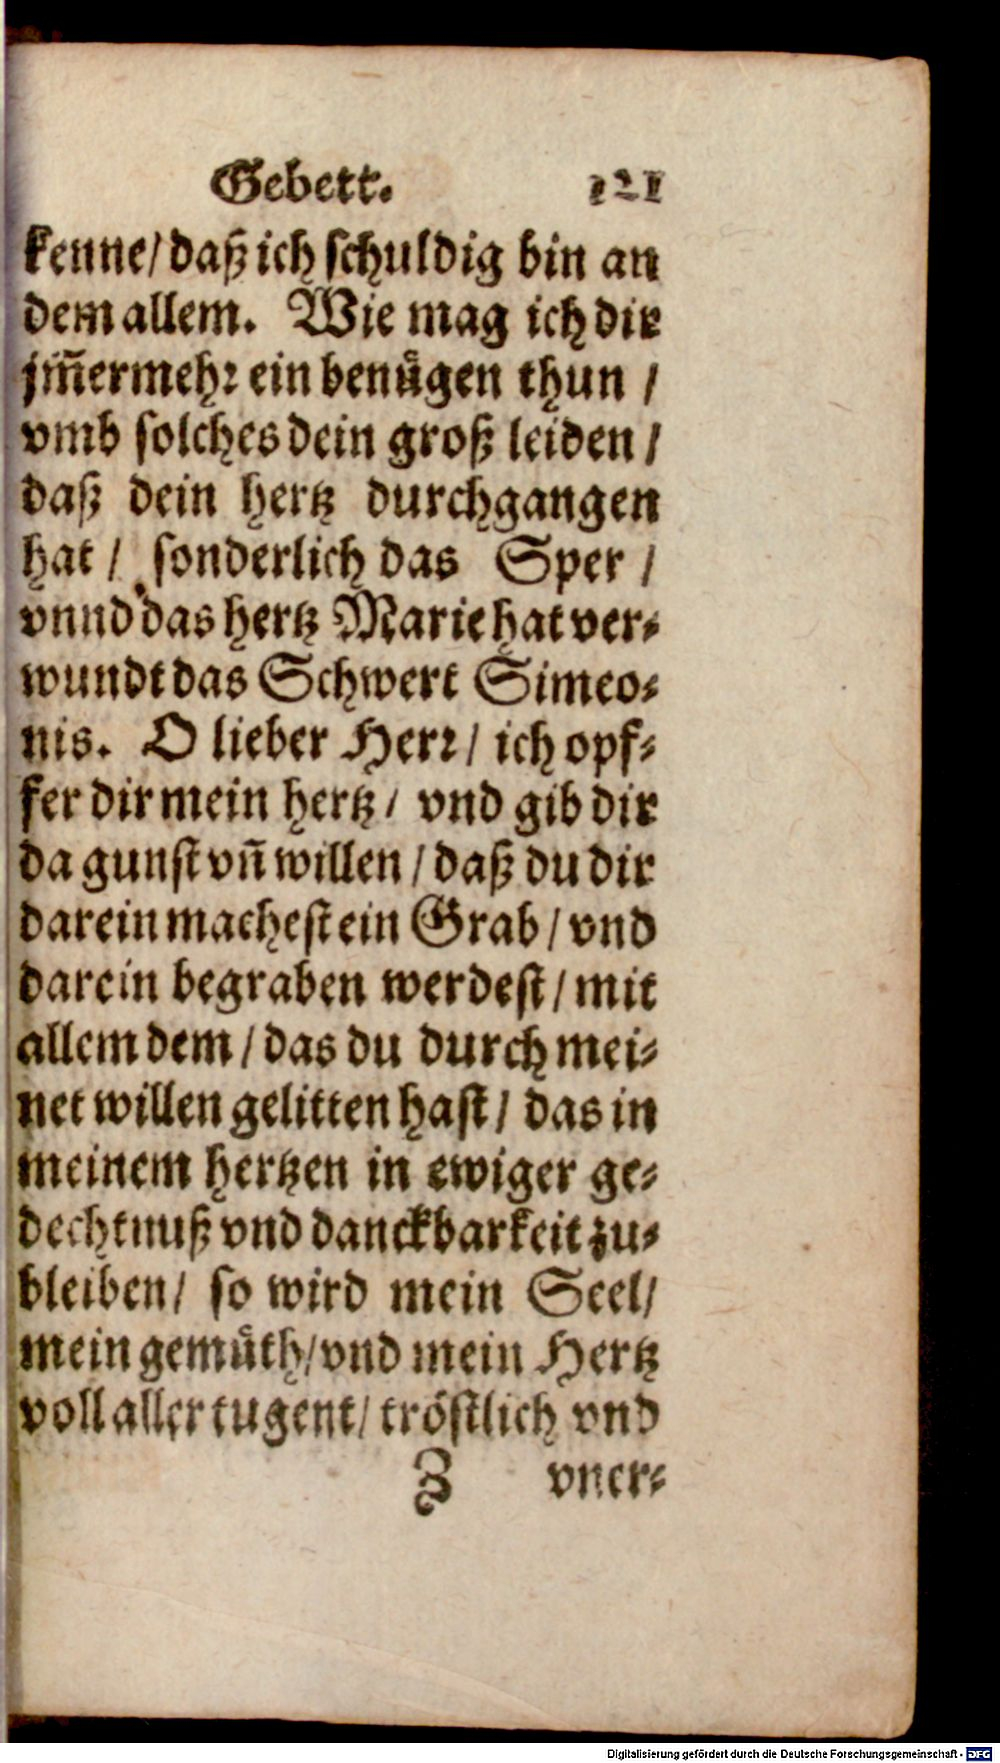 Gebett. 121
kenne/ daß ich schuldig bin an
dem allem. Wie mag ich dir
jm̃ermehr ein benuͤgen thun /
vmb solches dein groß leiden /
daß dein hertz durchgangen
hat / sonderlich das Sper /
vnnd das hertz Marie hat ver⸗
wundt das Schwert Simeo⸗
nis. O lieber Herr/ ich opf⸗
fer dir mein hertz/ vnd gib dir
da gunst vñ willen / daß du dir
darein machest ein Grab / vnd
darein begraben werdest / mit
allem dem / das du durch mei⸗
net willen gelitten hast / das in
meinem hertzen in ewiger ge⸗
dechtnuß vnd danckbarkeit zu⸗
bleiben/ so wird mein Seel/
mein gemuͤth/ vnd mein Hertz
voll aller tugent/ tröstlich vnd
Z vner⸗
Digitalisierung gefördert durch die Deutsche Forschungsgemeinschaft - DFG